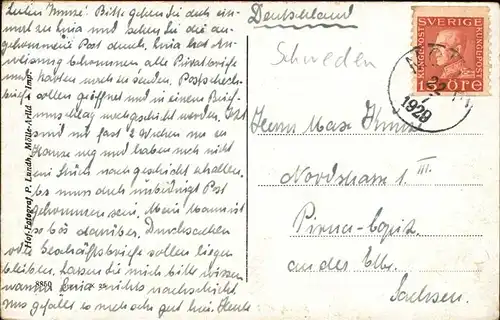 Lieber Kunze! Bitte gehen Sie doch ein-
mal zu Luia und sehen Sie die an-
gekommene Post durch. Luia hat An-
weisung bekommen alle Privatbriefe
und Karten nach zu senden. Postscheck-
briefe sollen geöffnet und in einem Brief-
umschlag nachgeschickt werden. Erst
sind wir fast 2 Wochen von zu
Hause weg und haben noch nicht
ein Stück nachgeschickt erhalten.
Es muss doch unbedingt Post
gekommen sein. Mein Mann ist
so bös darüber. Drucksachen
oder Geschäftsbriefe sollen liegen
bleiben. Lassen Sie mich bitte wissen
warum Luia nichts nachschickt
Uns gefällt es auch sehr gut hier. Herzl.
Hof-Fotograf P. Lundh, Mölle-Arild
8850
Deutschland
Schweden
SVERIGE
KUNGL. POST
KUNGL. POST
15 ÖRE
1929
Herrn Max Kunze
Nordstrasse 1 III.
Pirna-Copitz
an der Elbe
Sachsen.